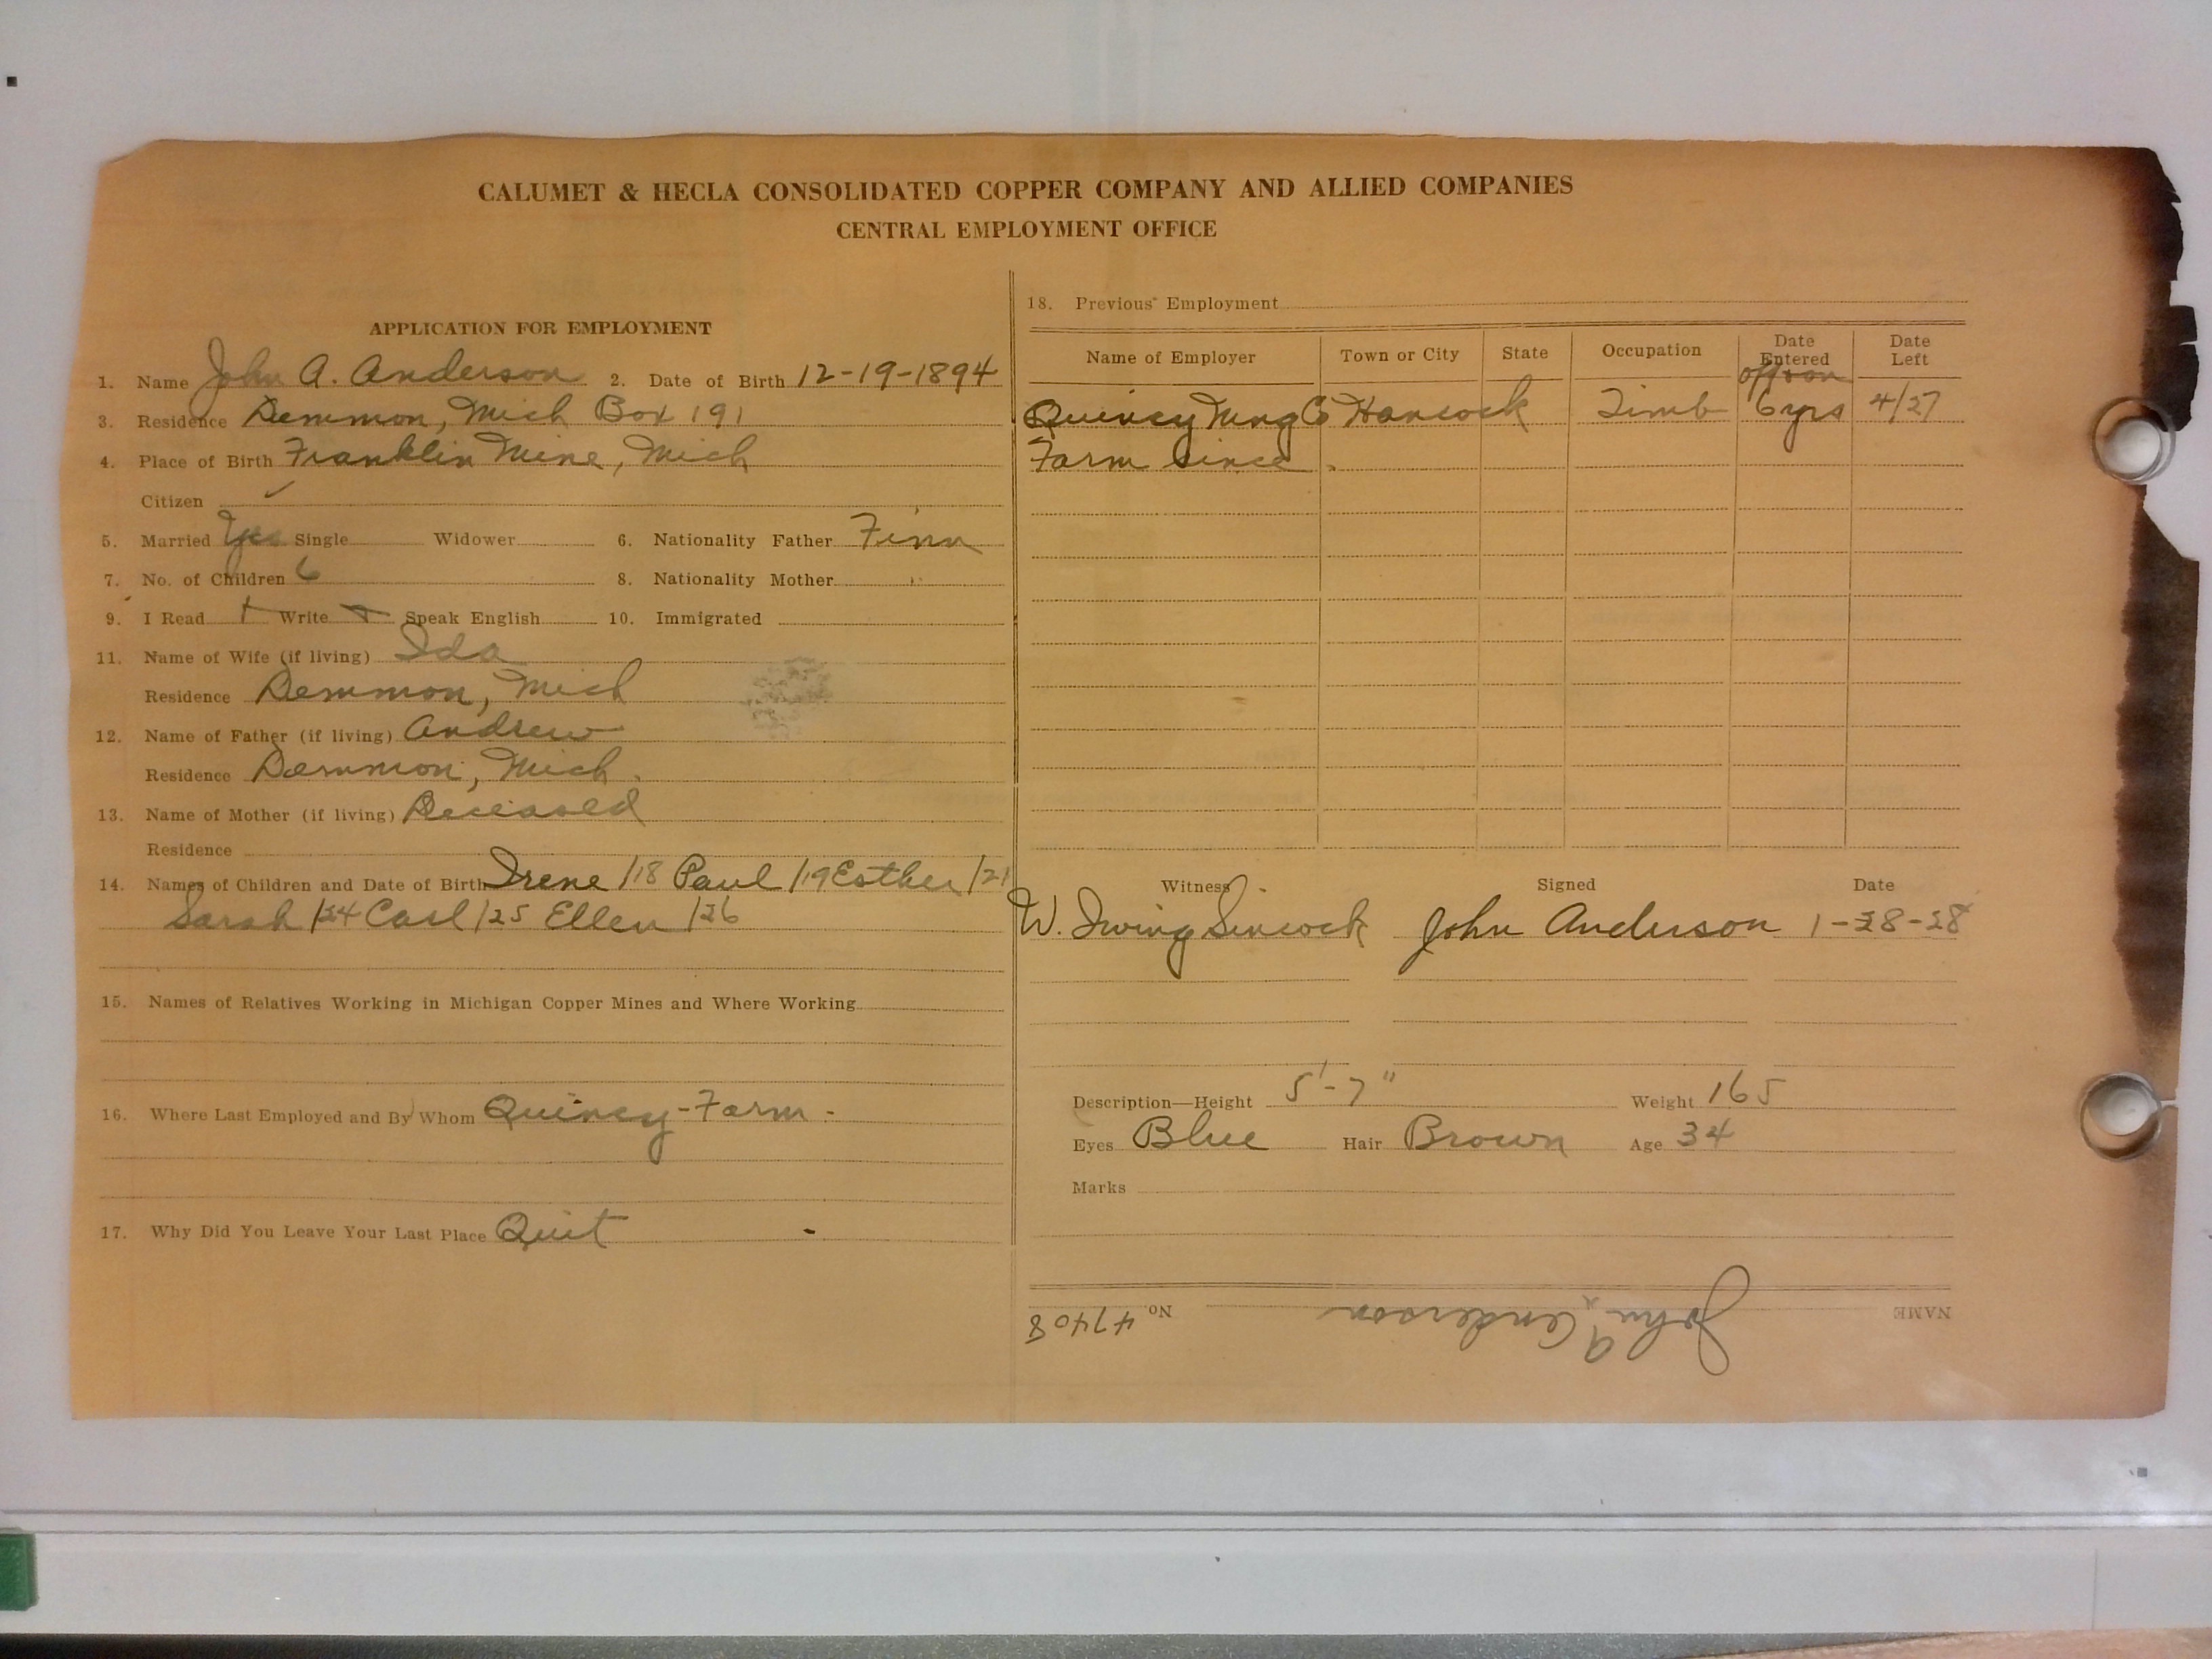 CALUMET & HECLA CONSOLIDATED COPPER COMPANY AND ALLIED COMPANIES
CENTRAL EMPLOYMENT OFFICE
APPLICATION FOR EMPLOYMENT
1. Name John A. Anderson 2. Date of Birth 12-19-1894
3. Residence Demmon, Mich Box 191
4. Place of Birth Franklin Mine, Mich
Citizen ✓
5. Married Yes Single Widower 6. Nationality Father Finn
7. No. of Children 6 8. Nationality Mother "
9. I Read + Write + Speak English 10. Immigrated
11. Name of Wife (if living) Ida
Residence Demmon, Mich
12. Name of Father (if living) Andrew
Residence Demmon, Mich.
13. Name of Mother (if living) Deceased
Residence
14. Names of Children and Date of Birth Irene /18 Paul /19 Esther /21
Sarah /24 Carl /25 Ellen /26
15. Names of Relatives Working in Michigan Copper Mines and Where Working
16. Where Last Employed and By Whom Quincy - Farm -
17. Why Did You Leave Your Last Place Quit -
18. Previous Employment
Name of Employer Town or City State Occupation Date Entered Date Left
off & on
Quincy Mng Co Hancock Timb 6 yrs 4/27
Farm since.
Witness Signed Date
W. Irving Sincock John Anderson 1-28-28
Description—Height 5'-7" Weight 165
Eyes Blue Hair Brown Age 34
Marks
NAME John A. Anderson No. 47408